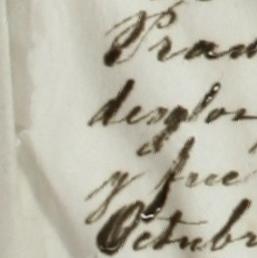 Prad
desglos
y fue
Octubr